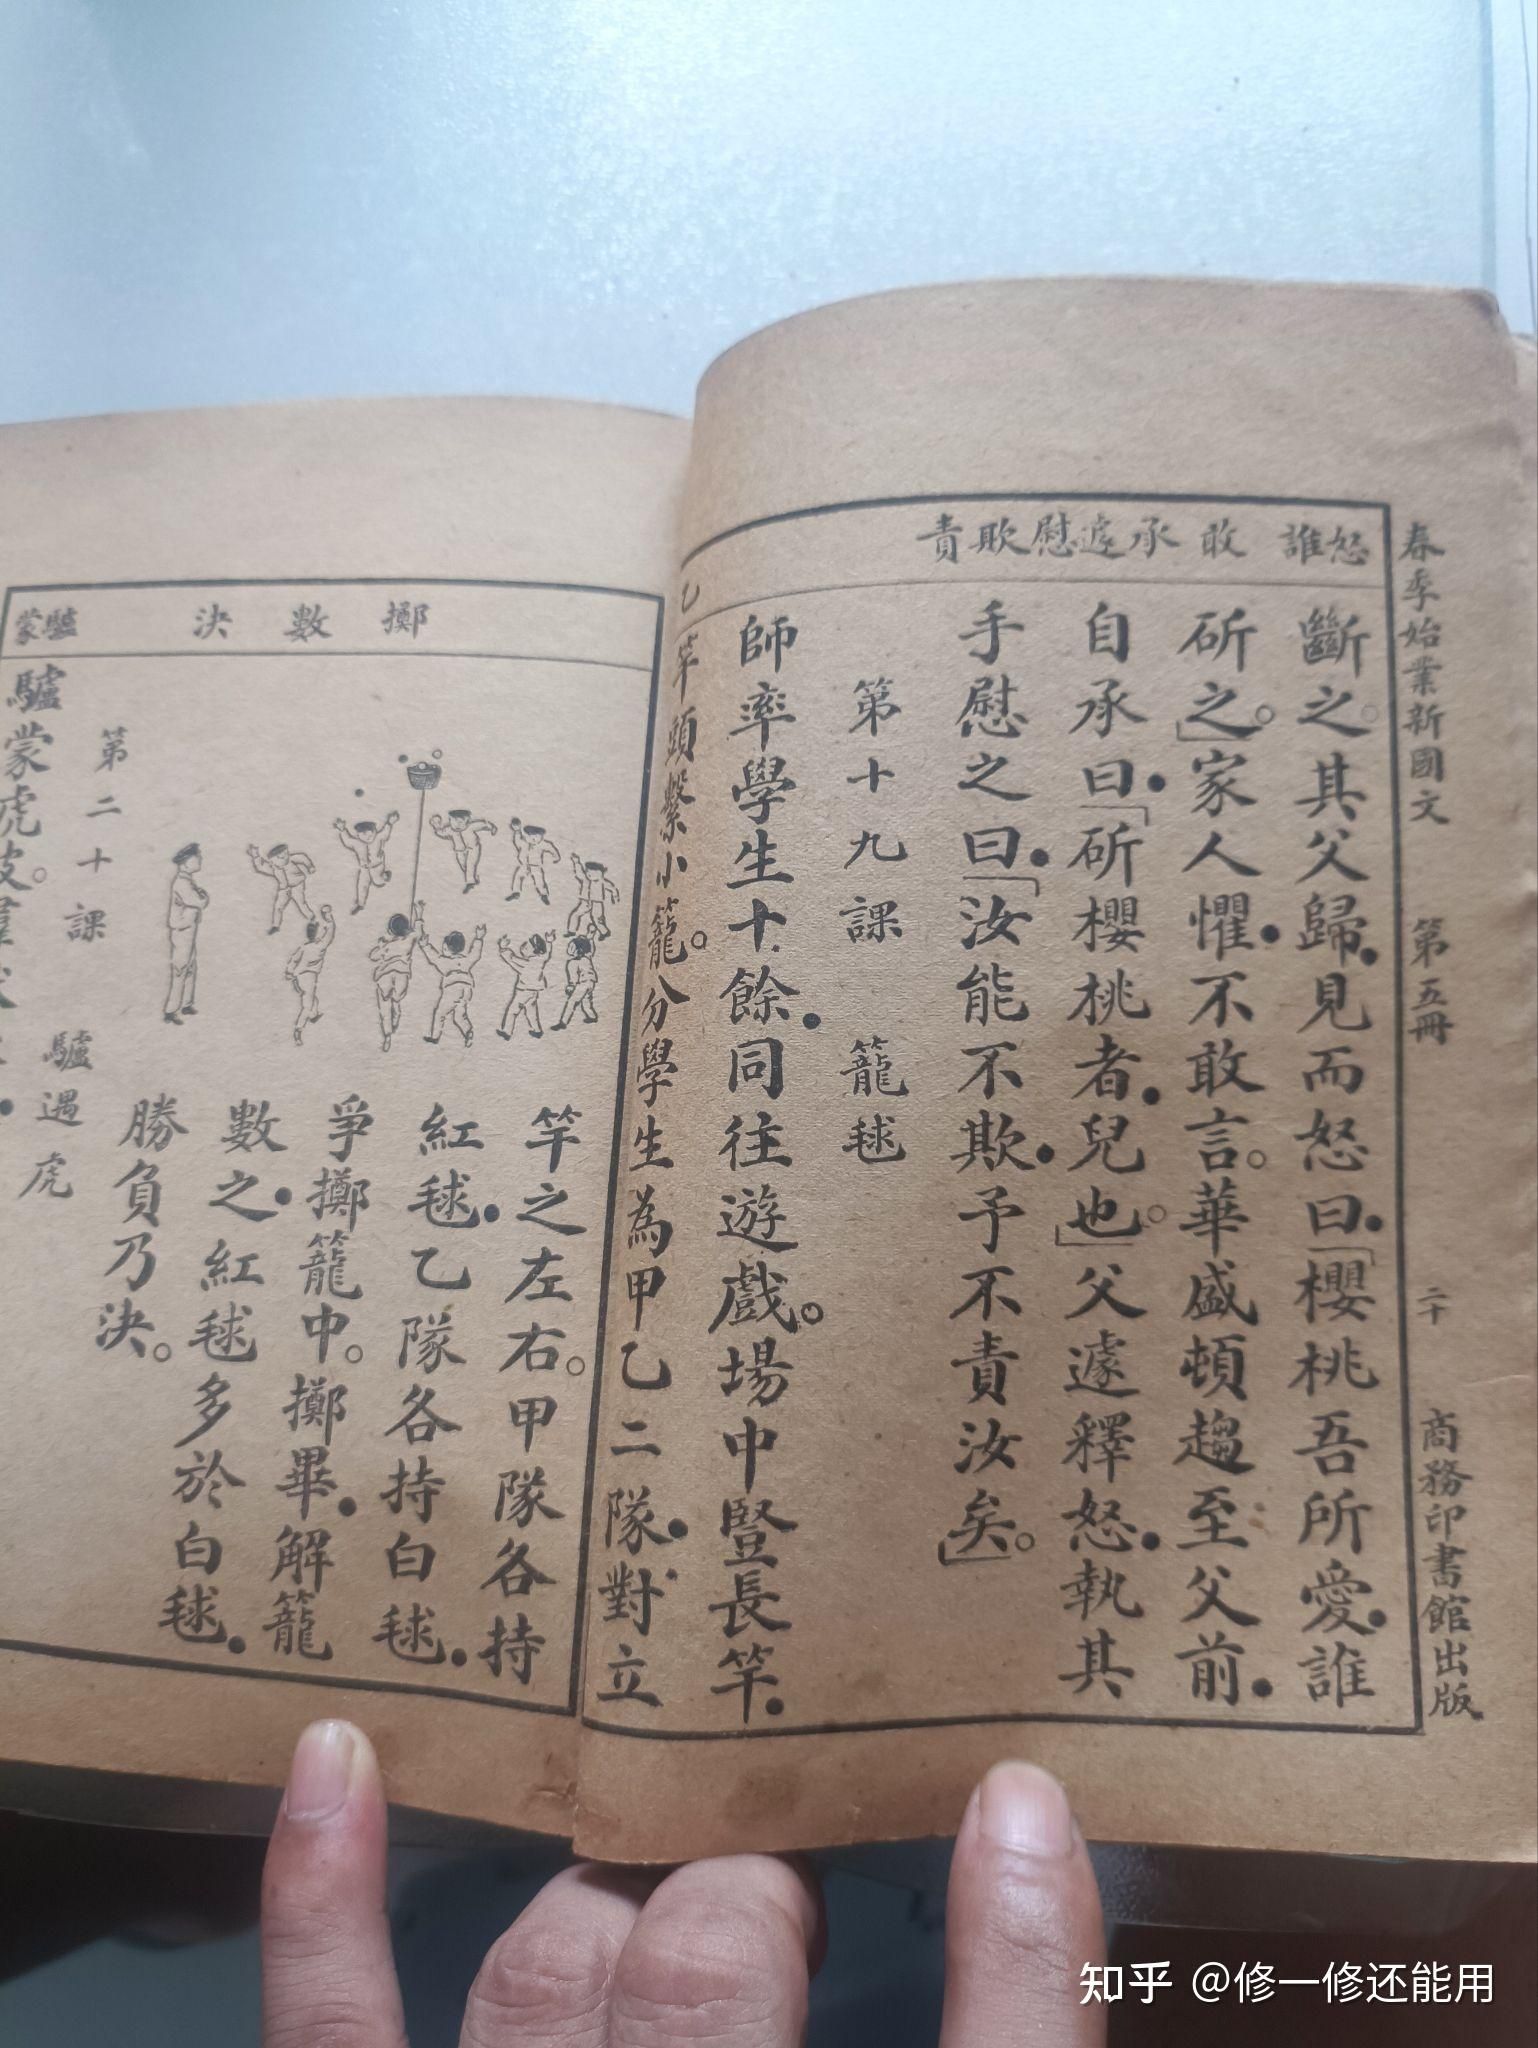 春季始業新國文 第五冊 二十 商務印書館出版
怒誰 敢 承遽慰欺責
乙
斷之。其父歸•見而怒曰•「櫻桃吾所愛•誰
斫之。」家人懼•不敢言。華盛頓趨至父前•
自承曰•「斫櫻桃者•兒也。」父遽釋怒•執其
手慰之曰•「汝能不欺•予不責汝矣。」
第十九課 籠毬
師率學生十餘•同往遊戲。場中豎長竿•
竿頭繫小籠。分學生為甲乙二隊•對立
擲 數 決 驢蒙
竿之左右。甲隊各持
紅毬•乙隊各持白毬•
爭擲籠中。擲畢•解籠
數之•紅毬多於白毬•
勝負乃決。
第二十課 驢遇虎
驢蒙虎皮。羣
知乎 @修一修还能用